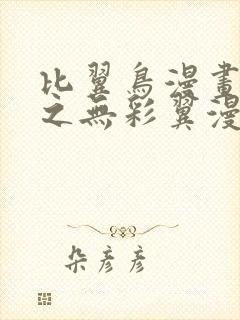 比翼鳥漫畫
之無彩翼漫
朵彥彥